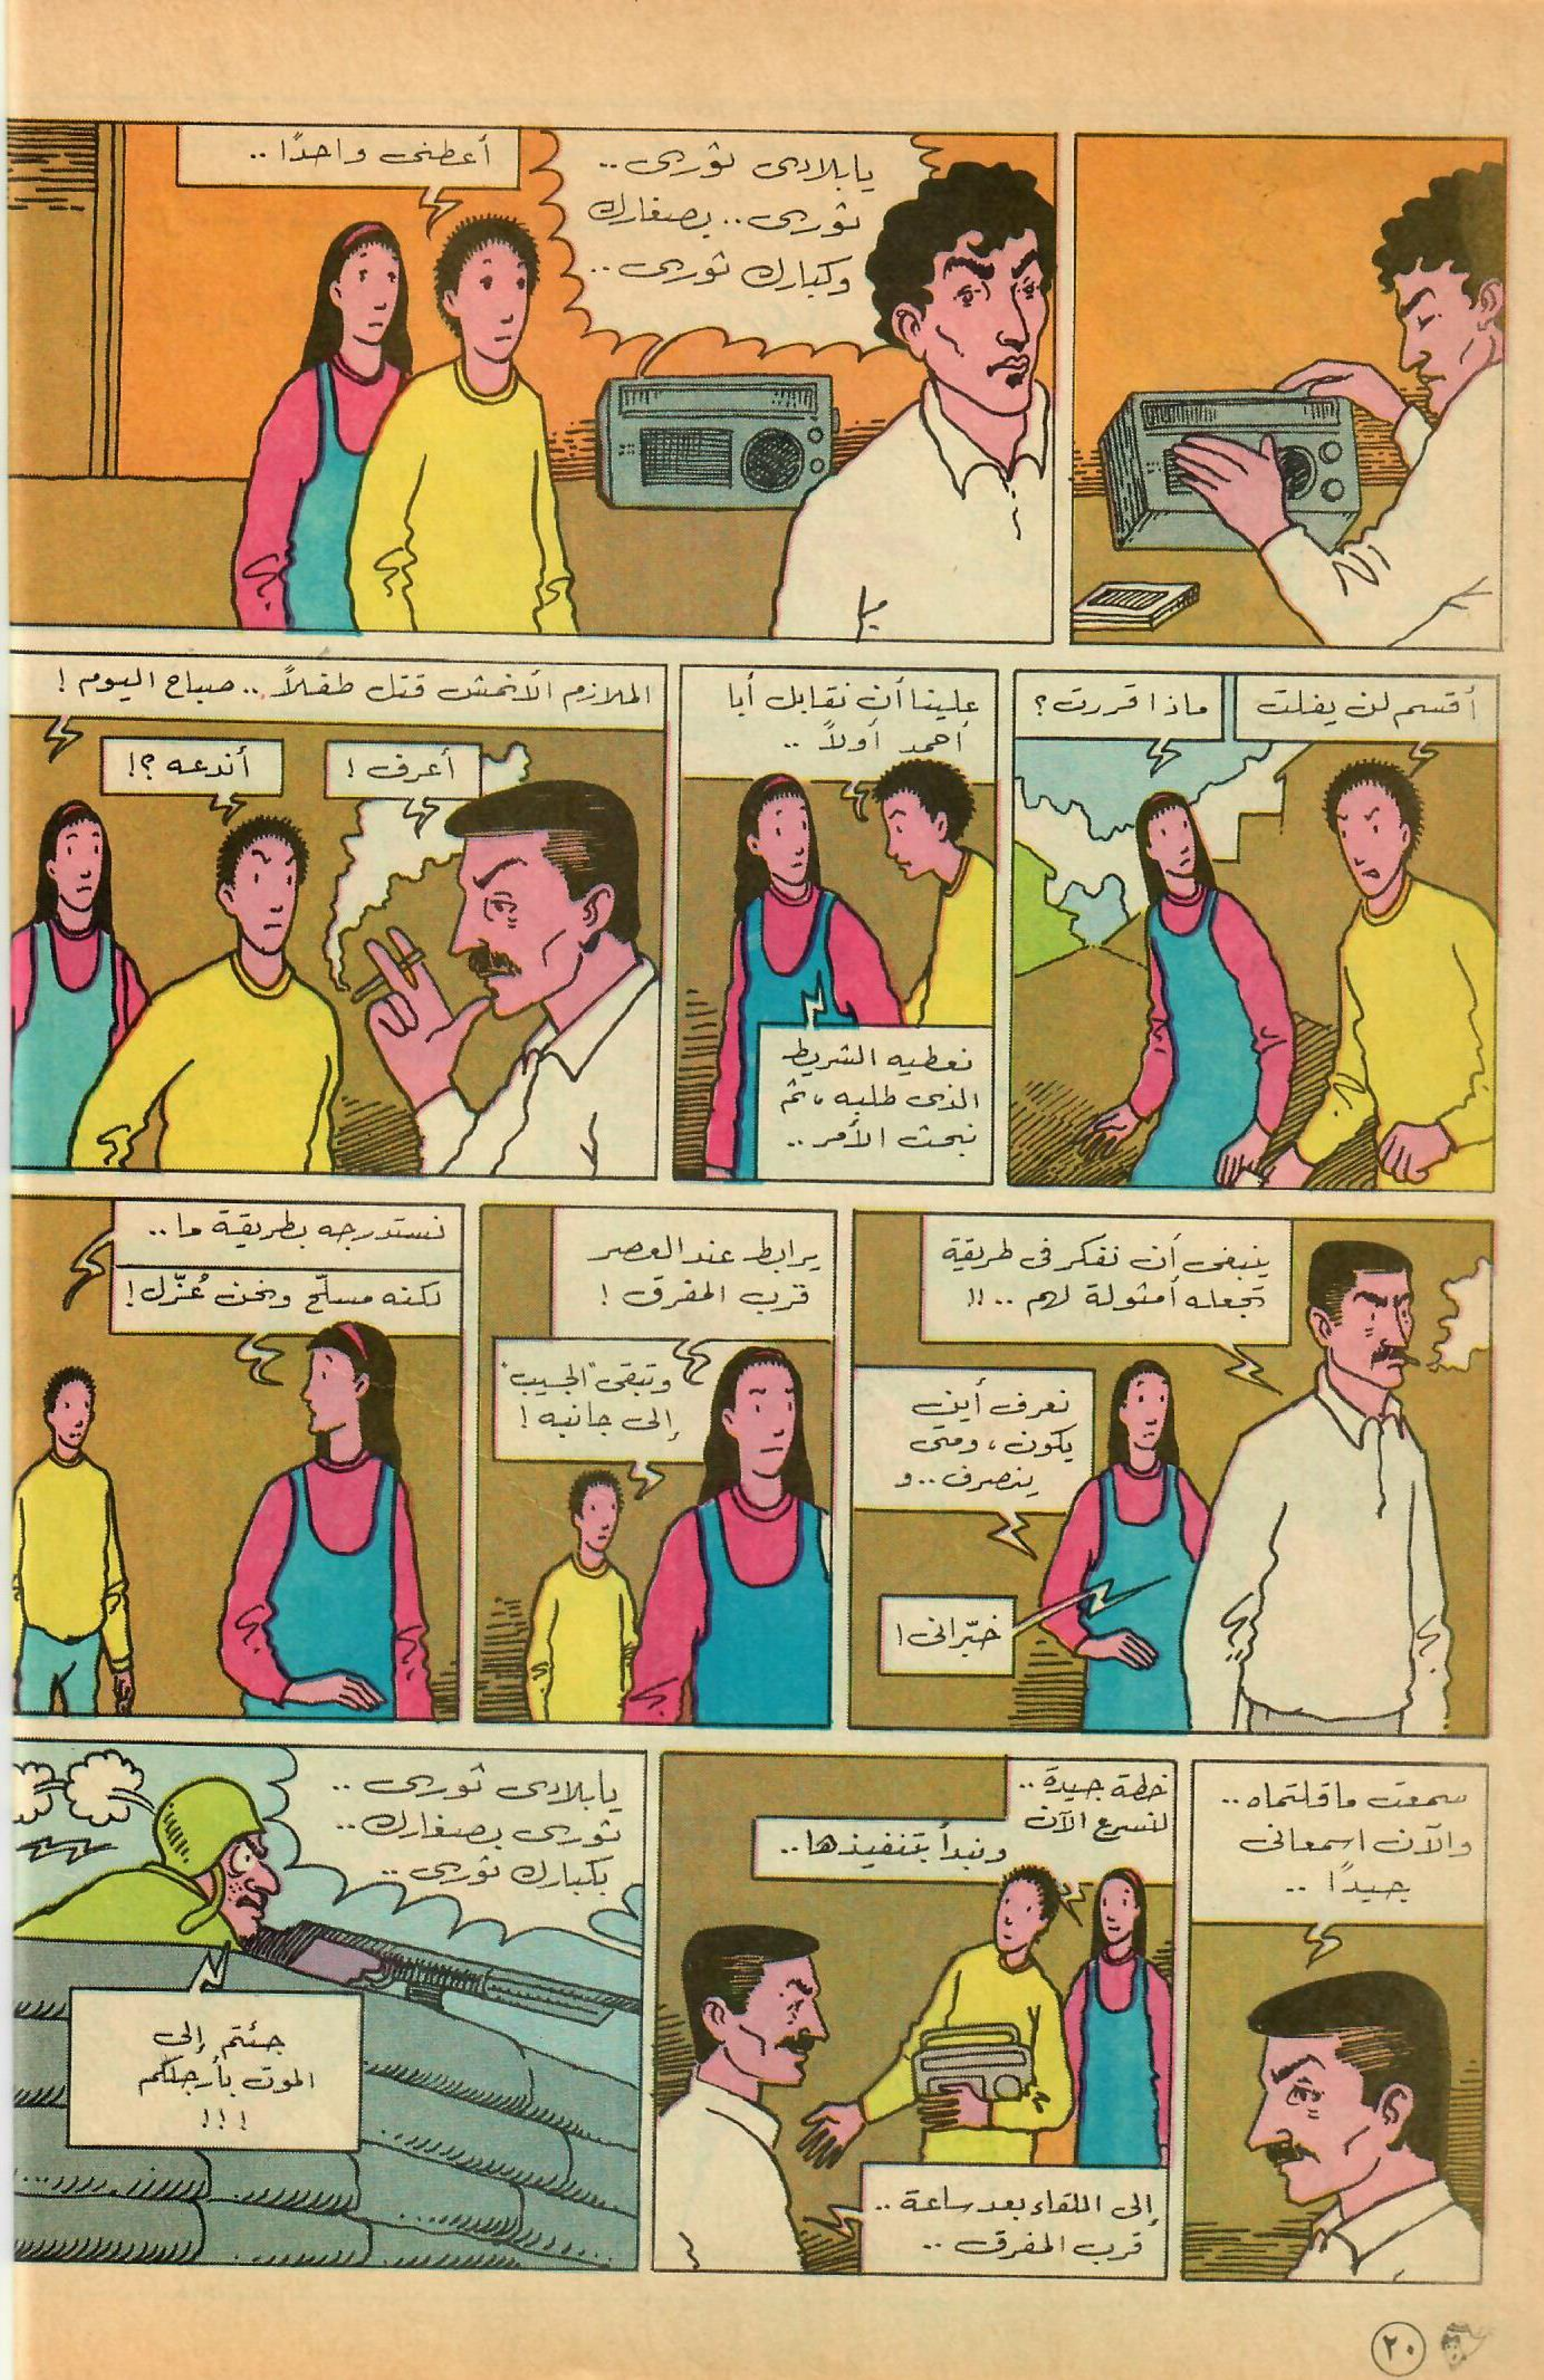 يا بلادى ثورى ..
ثورى .. بصغارك
وكبارك ثورى ..
أعطنى واحدًا ..
أقسم لن يفلت
ماذا قررت؟
علينا أن نقابل أبا
أحمد أولاً ..
نعطيه الشريط
الذى طلبه، ثم
نبحث الأمر ..
الملازم الأنمش قتل طفلاً .. صباح اليوم!
أعرف!
أندعه؟!
ينبغى أن نفكر فى طريقة
تجعله أمثولة لهم ..!!
نعرف أين
يكون، ومتى
ينصرف .. و
خبّرانى!
يرابط عند العصر
قرب المفرق!
وتبقى "الجيب"
إلى جانبه!
نستدرجه بطريقة ما ..
لكنه مسلّح ونحن عُزّل!
سمعت ما قلتماه ..
والآن اسمعانى
جيدًا ..
خطة جيدة ..
لنسرع الآن
ونبدأ بتنفيذها ..
إلى اللقاء بعد ساعة ..
قرب المفرق ..
يا بلادى ثورى ..
ثورى بصغارك ..
بكبارك ثورى ..
جئتم إلى
الموت بأرجلكم
!!!
٢٠